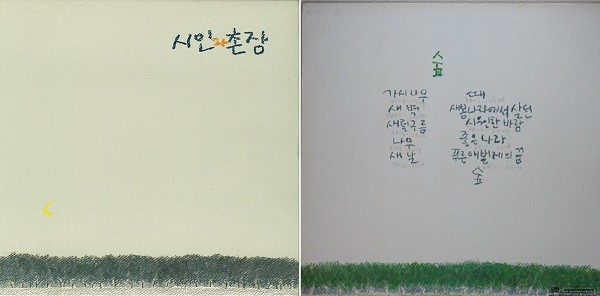 시인과촌장
숲
가시나무
새벽
새털구름
나무
새날
때
새봄나라에서 살던
시원한 바람
좋은 나라
푸른 애벌레의 꿈
숲